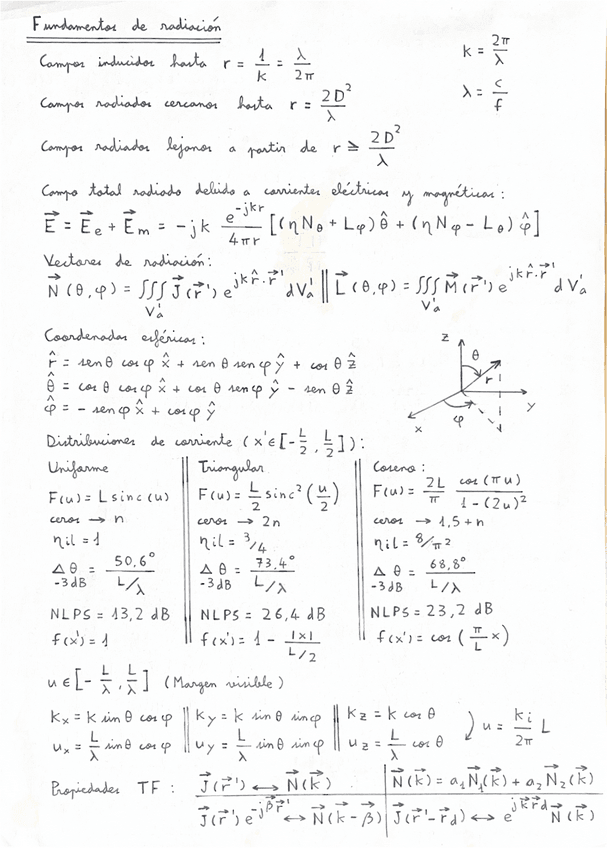 Fundamentos de radiación
Campos inducidos hasta r = 1/k = λ/2π
k = 2π/λ
Campos radiados cercanos hasta r = 2D²/λ
λ = c/f
Campos radiados lejanos a partir de r ≥ 2D²/λ
Campo total radiado debido a corrientes eléctricas y magnéticas:
E⃗ = E⃗e + E⃗m = -jk e^(-jkr)/4πr [(ηNθ + Lφ)θ̂ + (ηNφ - Lθ)φ̂]
Vectores de radiación:
N⃗(θ,φ) = ∭V'a J⃗(r⃗') e^(jk r̂·r⃗') dV'a || L⃗(θ,φ) = ∭V'a M⃗(r⃗') e^(jk r̂·r⃗') dV'a
Coordenadas esféricas:
r̂ = senθ cosφ x̂ + senθ senφ ŷ + cosθ ẑ
θ̂ = cosθ cosφ x̂ + cosθ senφ ŷ - senθ ẑ
φ̂ = - senφ x̂ + cosφ ŷ
z
θ
r
y
x
φ
Distribuciones de corriente (x'∈[-L/2, L/2]):
Uniforme
F(u) = L sinc(u)
ceros → n
ηil = 1
Δθ -3dB = 50,6°/(L/λ)
NLPS = 13,2 dB
f(x') = 1
Triangular
F(u) = L/2 sinc²(u/2)
ceros → 2n
ηil = 3/4
Δθ -3dB = 73,4°/(L/λ)
NLPS = 26,4 dB
f(x') = 1 - |x|/(L/2)
Coseno:
F(u) = 2L/π cos(πu)/(1-(2u)²)
ceros → 1,5+n
ηil = 8/π²
Δθ -3dB = 68,8°/(L/λ)
NLPS = 23,2 dB
f(x') = cos(π/L x)
u ∈ [-L/λ, L/λ] (Margen visible)
kx = k sinθ cosφ || ky = k sinθ sinφ || kz = k cosθ
ux = L/λ sinθ cosφ || uy = L/λ sinθ sinφ || uz = L/λ cosθ
u = ki/2π L
Propiedades TF: J⃗(r⃗') ↔ N⃗(k⃗) | N⃗(k⃗) = a₁N⃗₁(k⃗) + a₂N⃗₂(k⃗)
J⃗(r⃗') e^(-jβ⃗r⃗') ↔ N⃗(k⃗-β⃗) | J⃗(r⃗'-r⃗d) ↔ e^(jk⃗r⃗d) N⃗(k⃗)